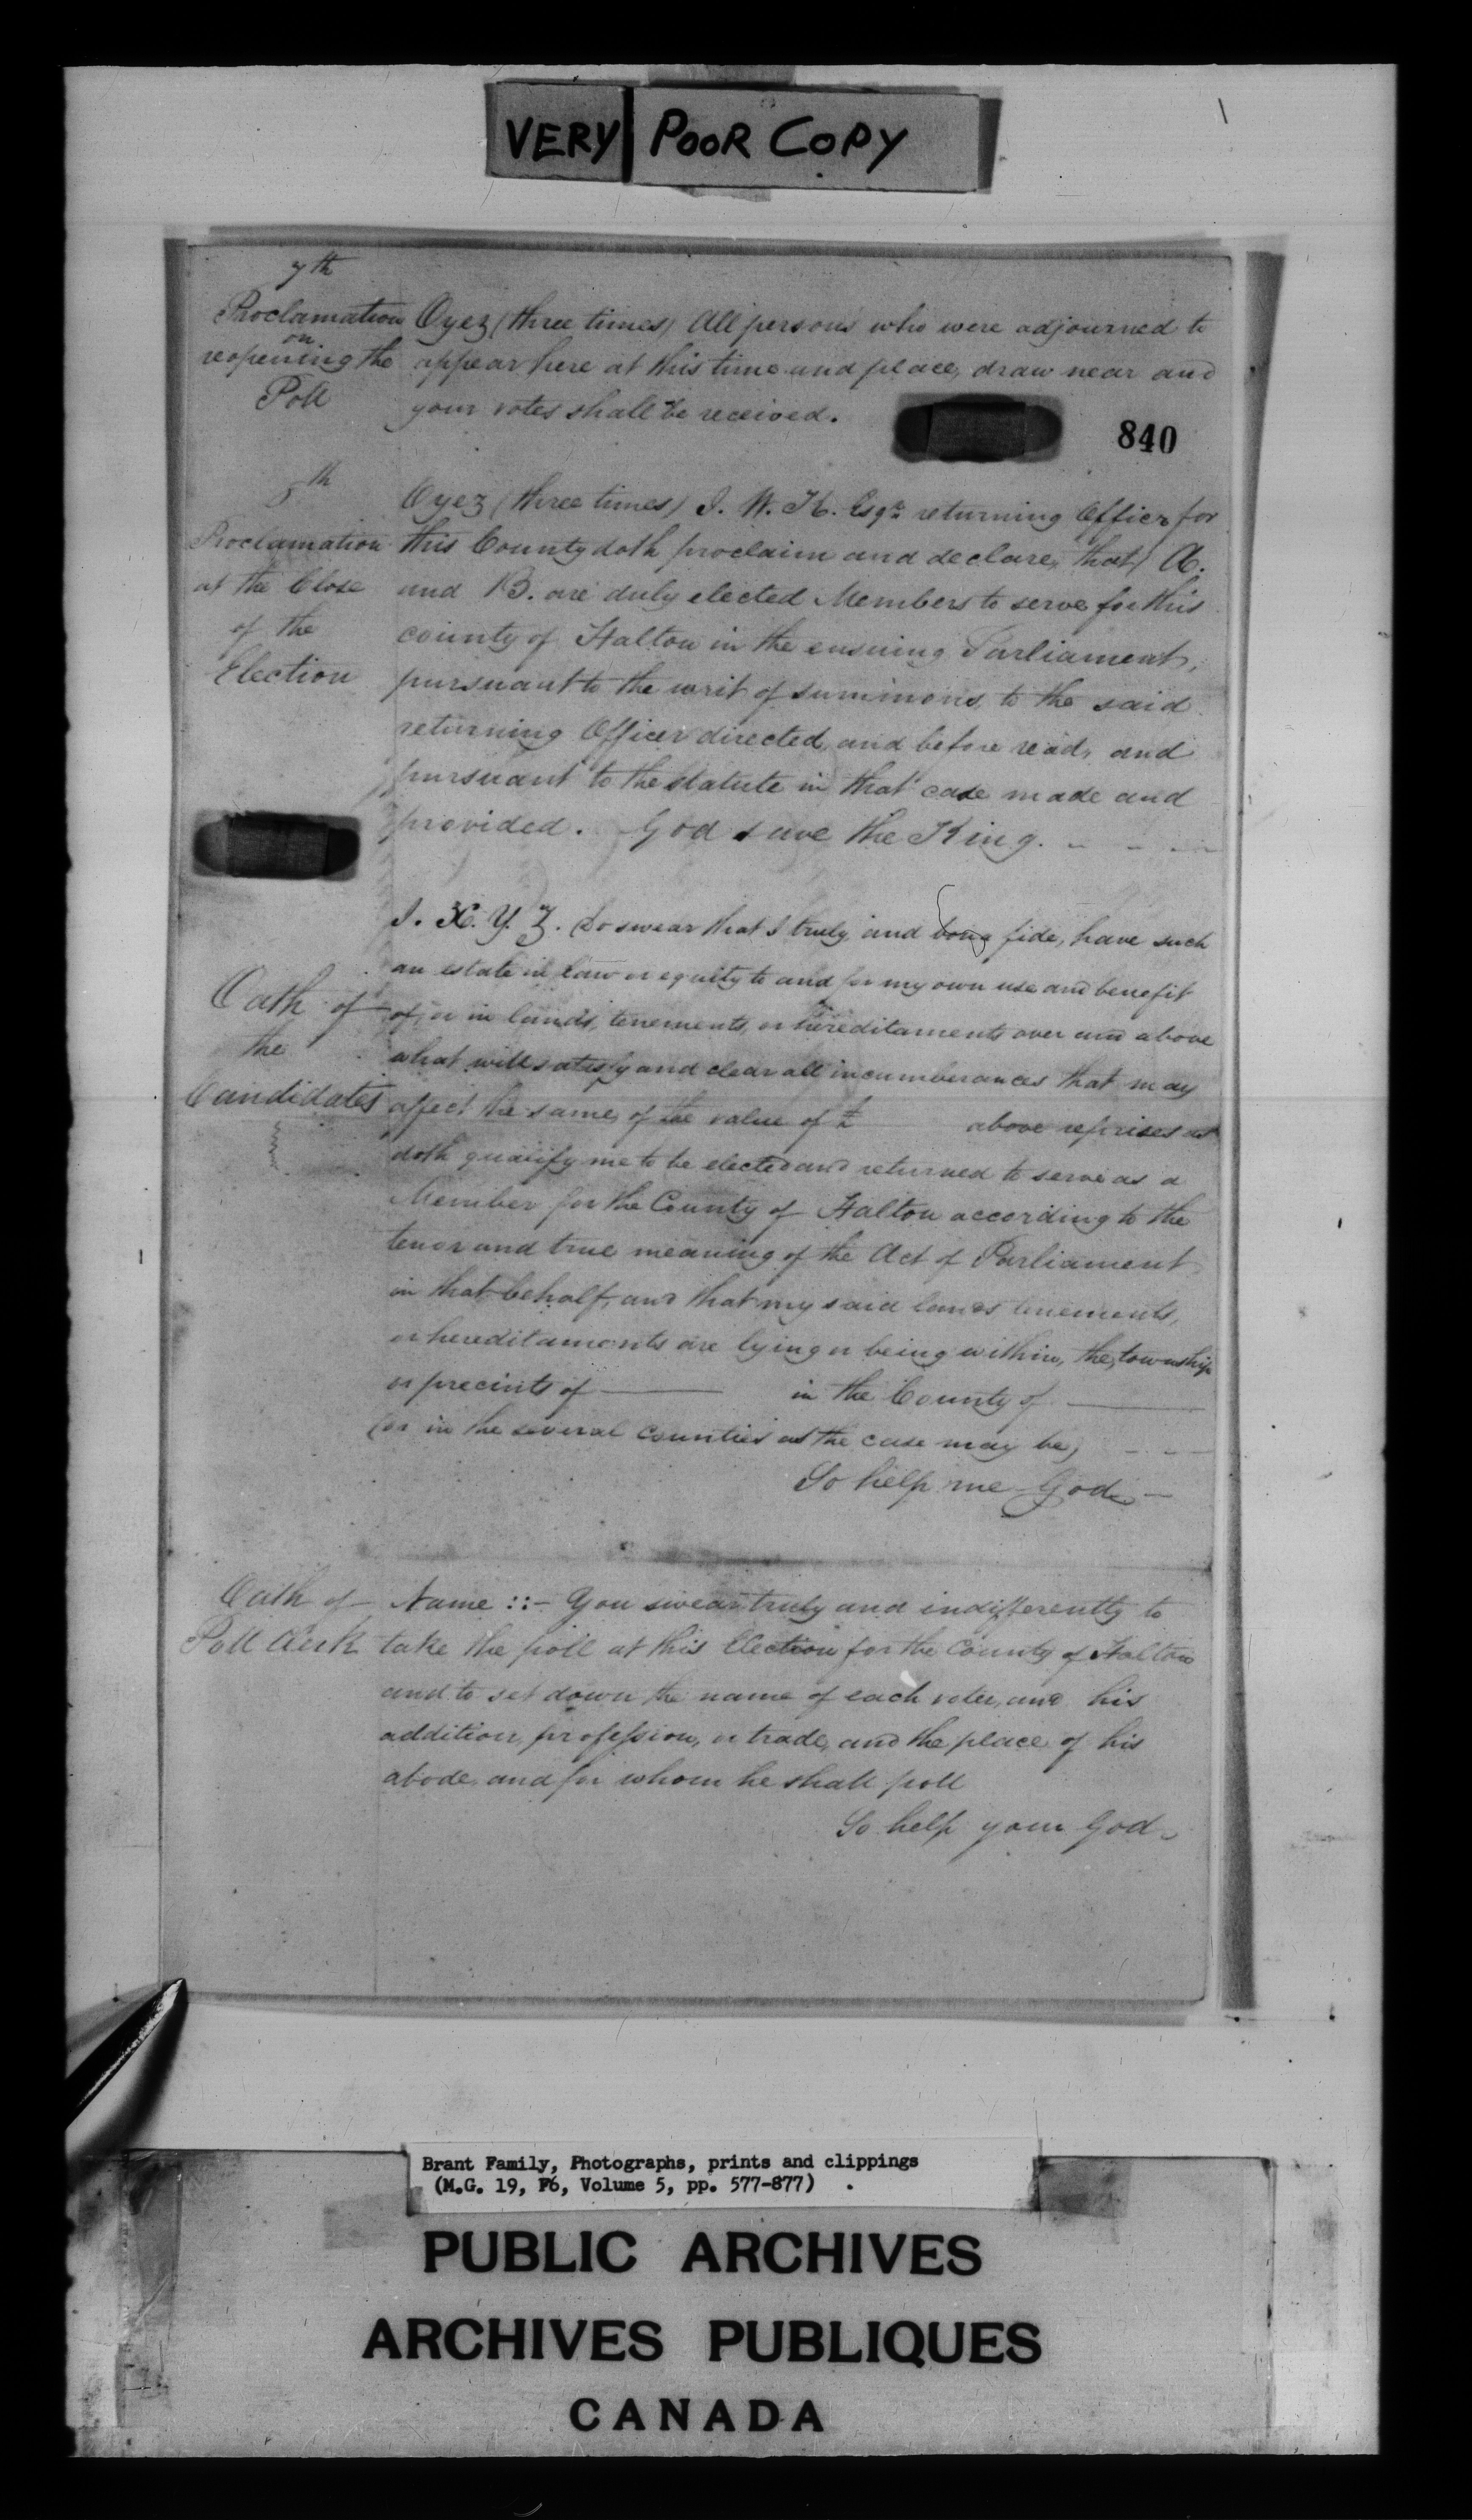 VERY POOR COPY
7th
Proclamation
on
reopening the
Poll
Oyez (three times) All persons who were adjourned to
appear here at this time and place, draw near and
your votes shall be received.
840
8th
Proclamation
at the Close
of the
Election
Oyez (three times) I. W. K. Esqr. returning Officer for
this County doth proclaim and declare, that A.
and B. are duly elected Members to serve for this
county of Halton in the ensuing Parliament,
pursuant to the writ of summons, to the said
returning Officer directed, and before read, and
pursuant to the statute in that case made and
provided. God save the King. - - -
Oath of
the
Candidates
I. X. Y. Z. do swear that I truly and bona fide, have such
an estate in law or equity to and for my own use and benefit
of, or in lands, tenements, or hereditaments over and above
what will satisfy and clear all incumberances that may
affect the same, of the value of £ above reprises as
doth qualify me to be elected and returned to serve as a
Member for the County of Halton according to the
tenor and true meaning of the Act of Parliament
in that behalf, and that my said lands tenements,
or hereditaments are lying or being within, the township
or precints of ——— in the County of ———
(or in the several counties as the case may be) - - -
So help me God. —
Oath of
Poll Clerk
Name ::- You swear truly and indifferently to
take the poll at this Election for the County of Halton
and to set down the name of each voter, and his
addition, profession, or trade, and the place of his
abode, and for whom he shall poll
So help your God.
Brant Family, Photographs, prints and clippings
(M.G. 19, F6, Volume 5, pp. 577-877) .
PUBLIC ARCHIVES
ARCHIVES PUBLIQUES
CANADA